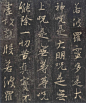 若波羅蜜多是大
神呪是大明呪是無
上呪是無等等呪能
除一切苦真實不
虛故說般若波羅